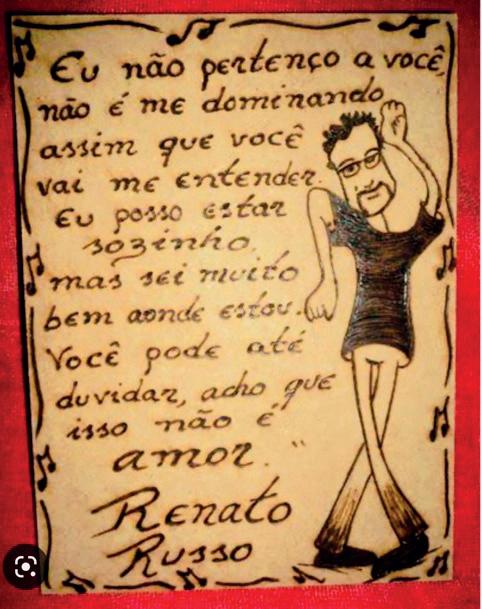 Eu não pertenço a você,
não é me dominando
assim que você
vai me entender.
Eu posso estar
sozinho,
mas sei muito
bem aonde estou.
Você pode até
duvidar, acho que
isso não é
amor."
Renato
Russo